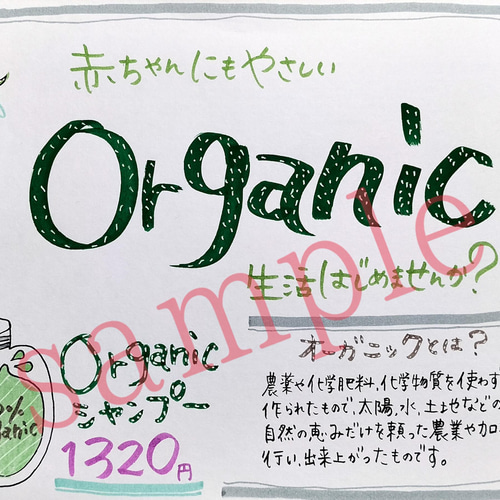 赤ちゃんにもやさしい
Organic
生活はじめませんか?
Organic
シャンプー
1320円
オーガニックとは?
農業や化学肥料、化学物質を使わず
作られたもので、太陽、水、土地などの
自然の恵みだけを頼った農業や加
行い、出来上がったものです。
sample